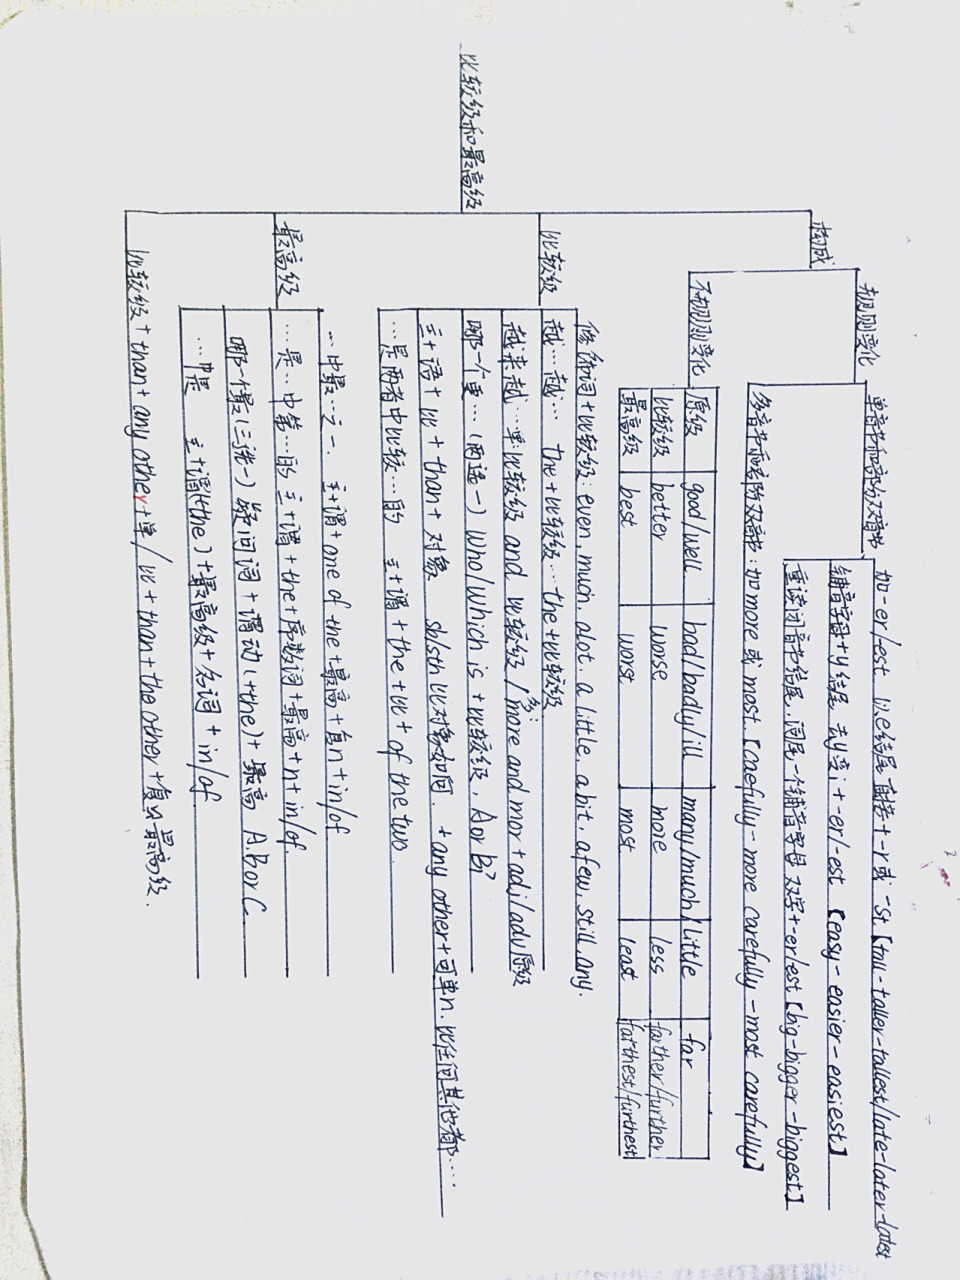 比较级和最高级
构成
规则变化
单音节和部分双音节
加-er/est 以e结尾直接+-r或-st【tall-taller-tallest/late-later-latest
辅音字母+y结尾 去y变i+-er/-est【easy-easier-easiest】
重读闭音节结尾,词尾一个辅音字母 双写+-er/est【big-bigger-biggest】
多音节和部分双音节:加more或most【caefully-more carefully-most carefully】
不规则变化
原级 good/well bad/badly/ill many/much little far
比较级 better worse more less farther/further
最高级 best worst most least farthest/furthest
比较级
修饰词+比较级:even,much,alot,a little,a bit,a few,still,any.
越…越… the+比较级…the+比较级
越来越…单:比较级 and 比较级/多:more and mor+adj/adv原级
哪一个更…(两选一) Who/Which is+比较级, A or B?
主+语+比+than+对象 sb/sth比对象如何. +any other+可单n.比任何其他都…
…是两者中比较…的 主+谓+the+比+of the two.
最高级
…中最…之一 主+谓+one of the+最高+复n+in/of
…是…中第…的 主+谓+the+序数词+最高+n+in/of.
哪一个最(三选一) 疑问词+谓动(+the)+最高 A.B or C.
…是 主+谓(+the)+最高级+名词+in/of
比较级+than+any other+单/比+than+the other+复以最高级.